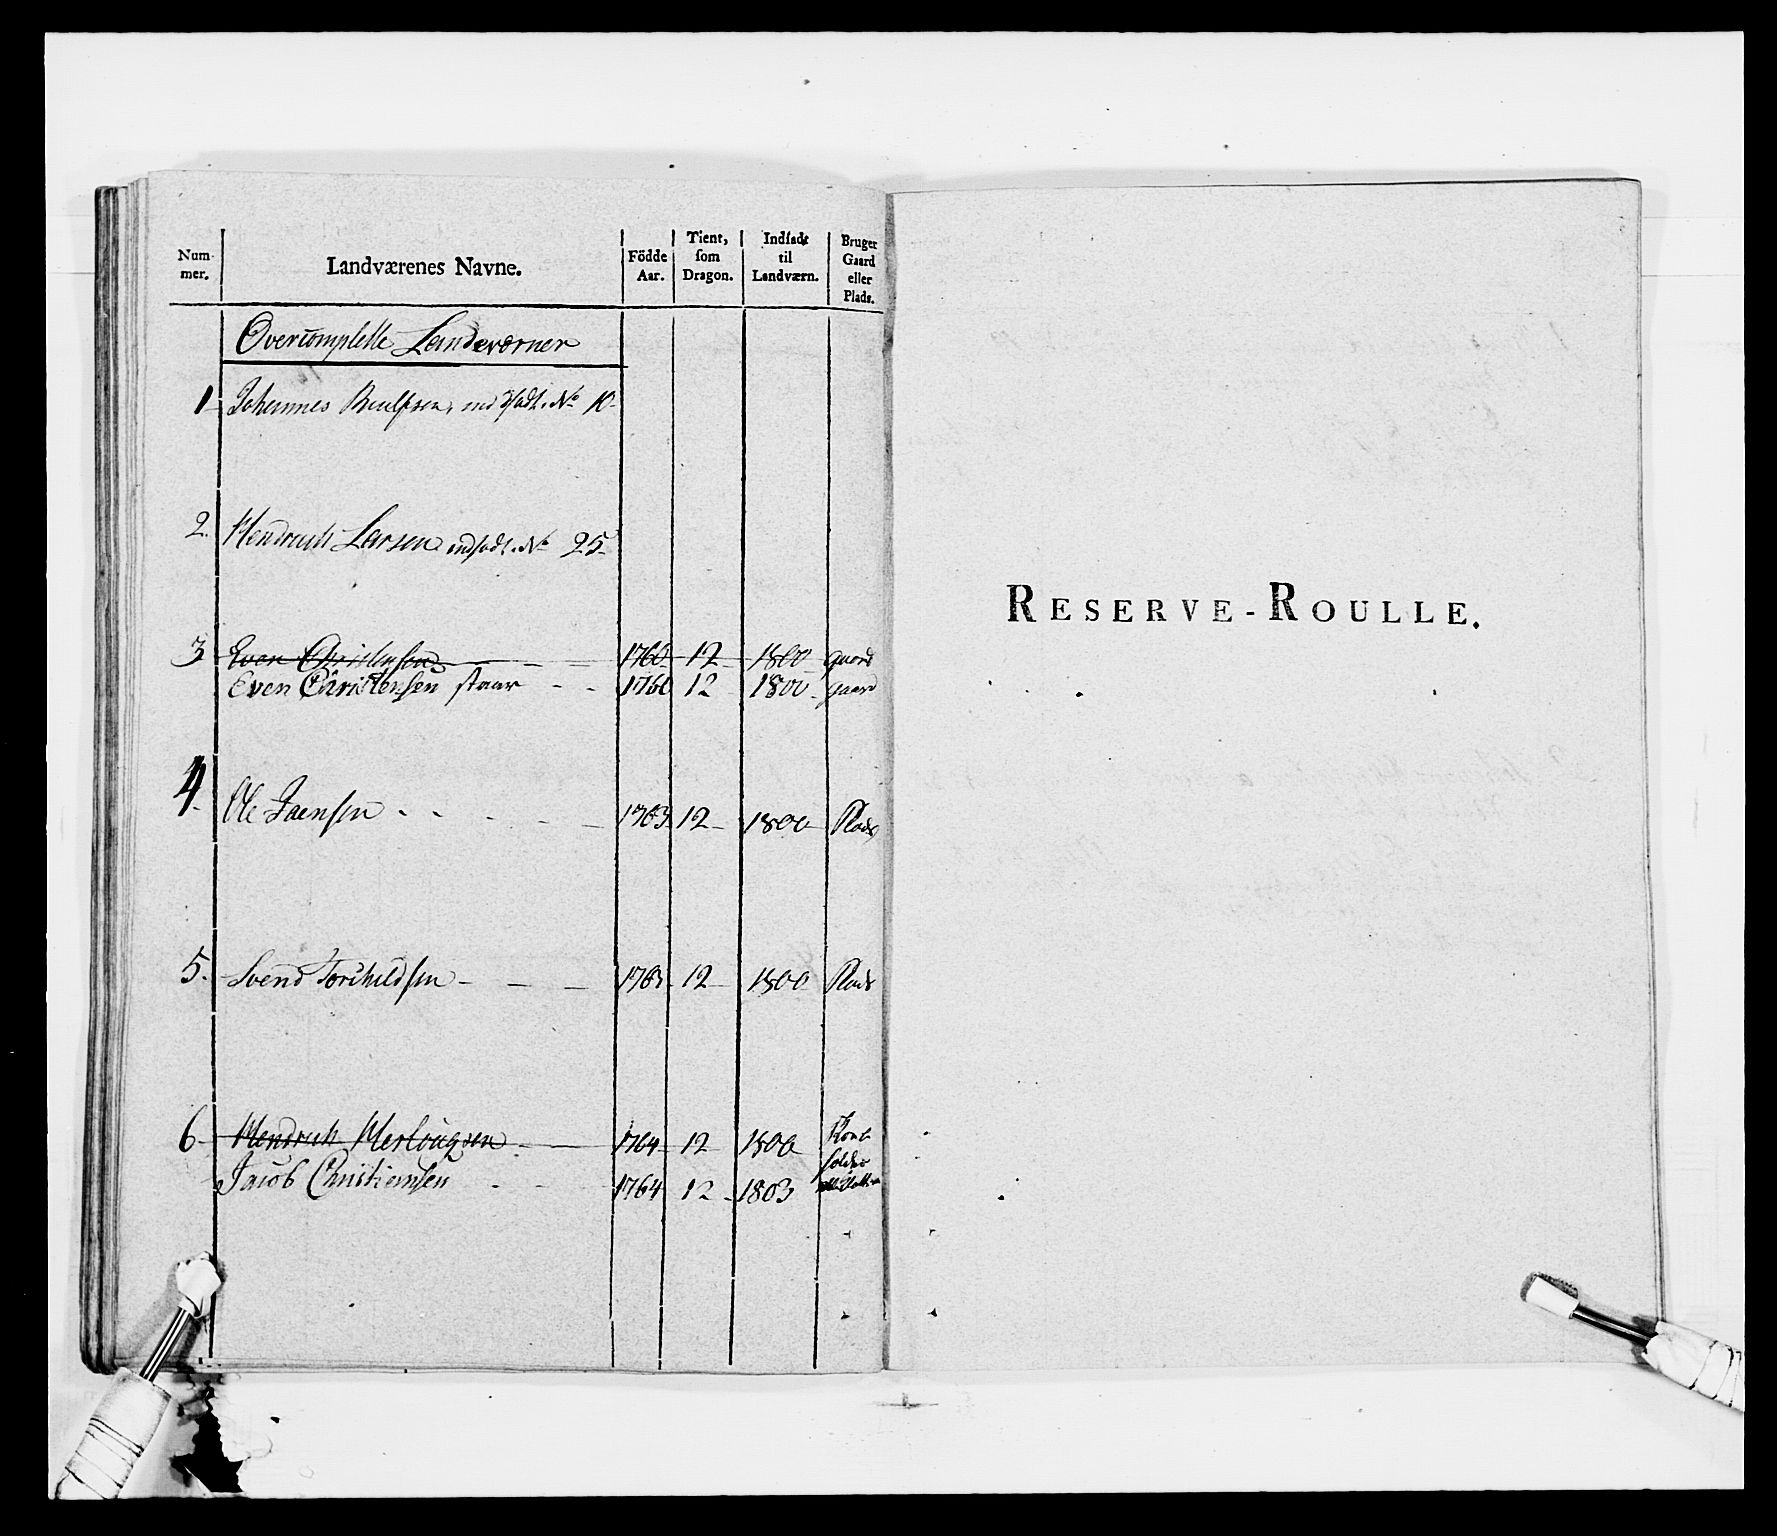 Num-
mer.
Landværenes Navne.
Födde
Aar.
Tient,
som
Dragon.
Indsadt
til
Landværn.
Bruger
Gaard
eller
Plads.
Overcomplette Landeværner
1 Johannes indsadt. No 10
2. Hendrich Larsen indsadt. No 25
3 Even Christensen 1760 12 1800 gaard
Even Christensen staar 1760 12 1800 gaard
4. Ole Jaensen 1763 12 1800 Plads
5. Svend Torchildsen 1763 12 1800 Plads
6. Hendrich Herlougsen 1764 12 1800
Jacob Christiensen 1764 12 1803
RESERVE-ROULLE.